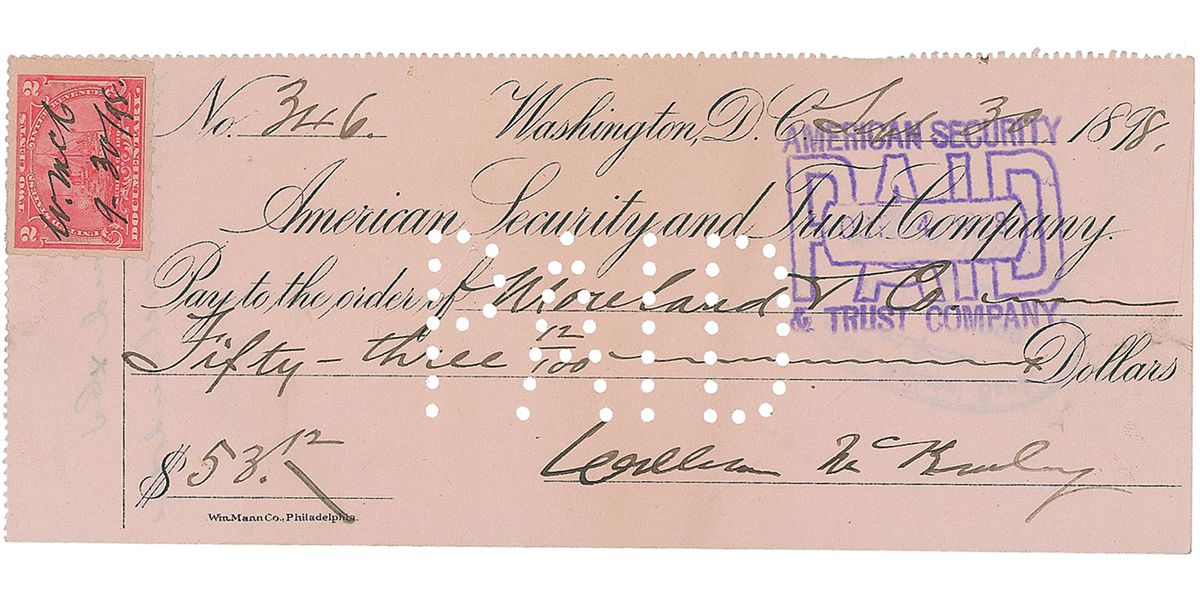 No. 346. Washington, D.C. 30 1898.
American Security and Trust Company.
Pay to the order of Moreland & Co
Fifty-three 12/100 Dollars
$53.12
William McKinley
Wm. Mann Co., Philadelphia.
2 TWO CENTS 2
DOCUMENTARY.
W. McK
9-30/98.
AMERICAN SECURITY
PAID
PAID
& TRUST COMPANY.
PAID